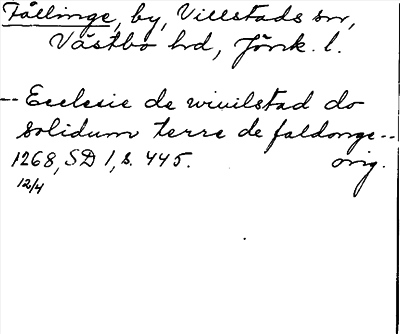 Fållinge, by, Villstads sn,
Västbo hd, Jönk. l.
-- Ecclesie de wiuilstad do
solidum terre de faldonge --
1268, SD 1, s. 445. orig.
12/4